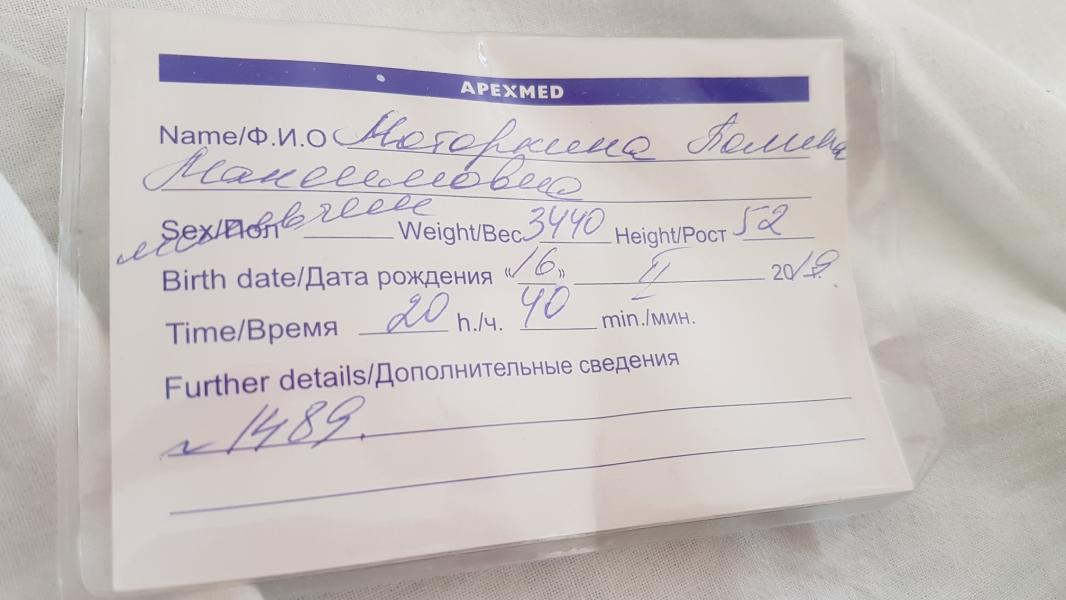 APEXMED
Name/Ф.И.О Моторкина Полина
Максимовна
Sex/Пол Weight/Вес 3440 Height/Рост 52
Birth date/Дата рождения «16» II 20
Time/Время 20 h./ч. 40 min./мин.
Further details/Дополнительные сведения
№ 1489.